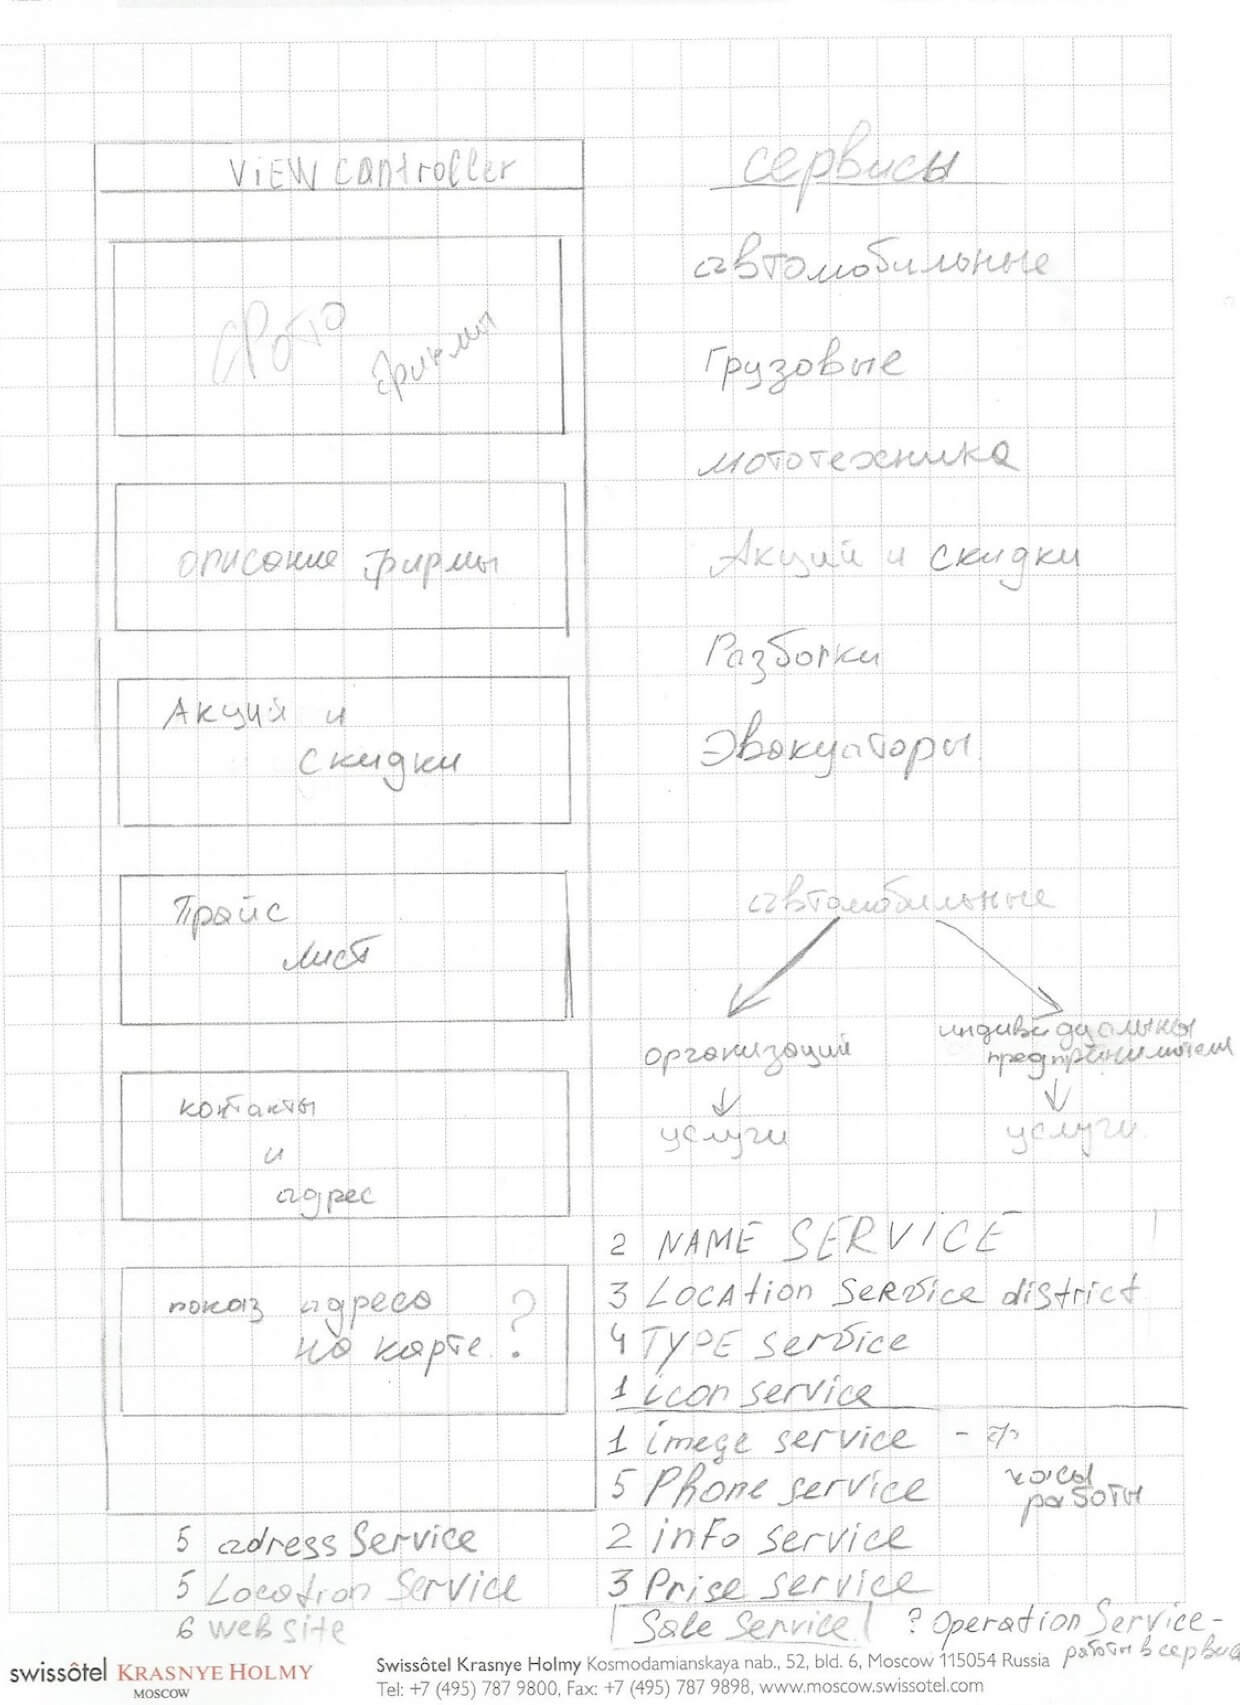 ViEW controller
Фото
фирмы
описание фирмы
Акций и
скидки
Прайс
лист
контакты
и
адрес
показ адреса ?
на карте.
сервисы
автомобильные
Грузовые
мототехника
Акций и скидки
Разборки
Эвакуаторы
автомобильные
организаций
индивидуальные
предприниматели
услуги
услуги
2 NAME SERVICE
3 LOCAtion SeRvice district
4 TYPE service
1 icon service
1 imege service -
5 Phone service
часы
работы
2 info service
3 Prise service
Sale Service
? Operation Service -
работы в сервисе
5 adress Service
5 Location Service
6 web site
swissôtel KRASNYE HOLMY
MOSCOW
Swissôtel Krasnye Holmy Kosmodamianskaya nab., 52, bld. 6, Moscow 115054 Russia
Tel: +7 (495) 787 9800, Fax: +7 (495) 787 9898, www.moscow.swissotel.com